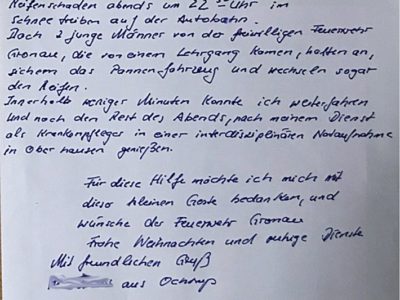 Reifenschaden abends um 22 00 Uhr im
Schnee trüben auf der Autobahn.
Doch 2 junge Männer von der freiwilligen Feuerwehr
Gronau, die von einem Lehrgang kamen, halten an,
sichern das Pannenfahrzeug und wechseln sogar
den Reifen.
Innerhalb weniger Minuten konnte ich weiterfahren
und noch den Rest des Abends, nach meinem Dienst
als Krankenpfleger in einer interdisziplinären Notaufnahme
in Oberhausen genießen.
Für diese Hilfe möchte ich mich mit
dieser kleinen Geste bedanken, und
wünsche der Feuerwehr Gronau
Frohe Weihnachten und ruhige Dienste
Mit freundlichen Gruß
aus Ochtrup